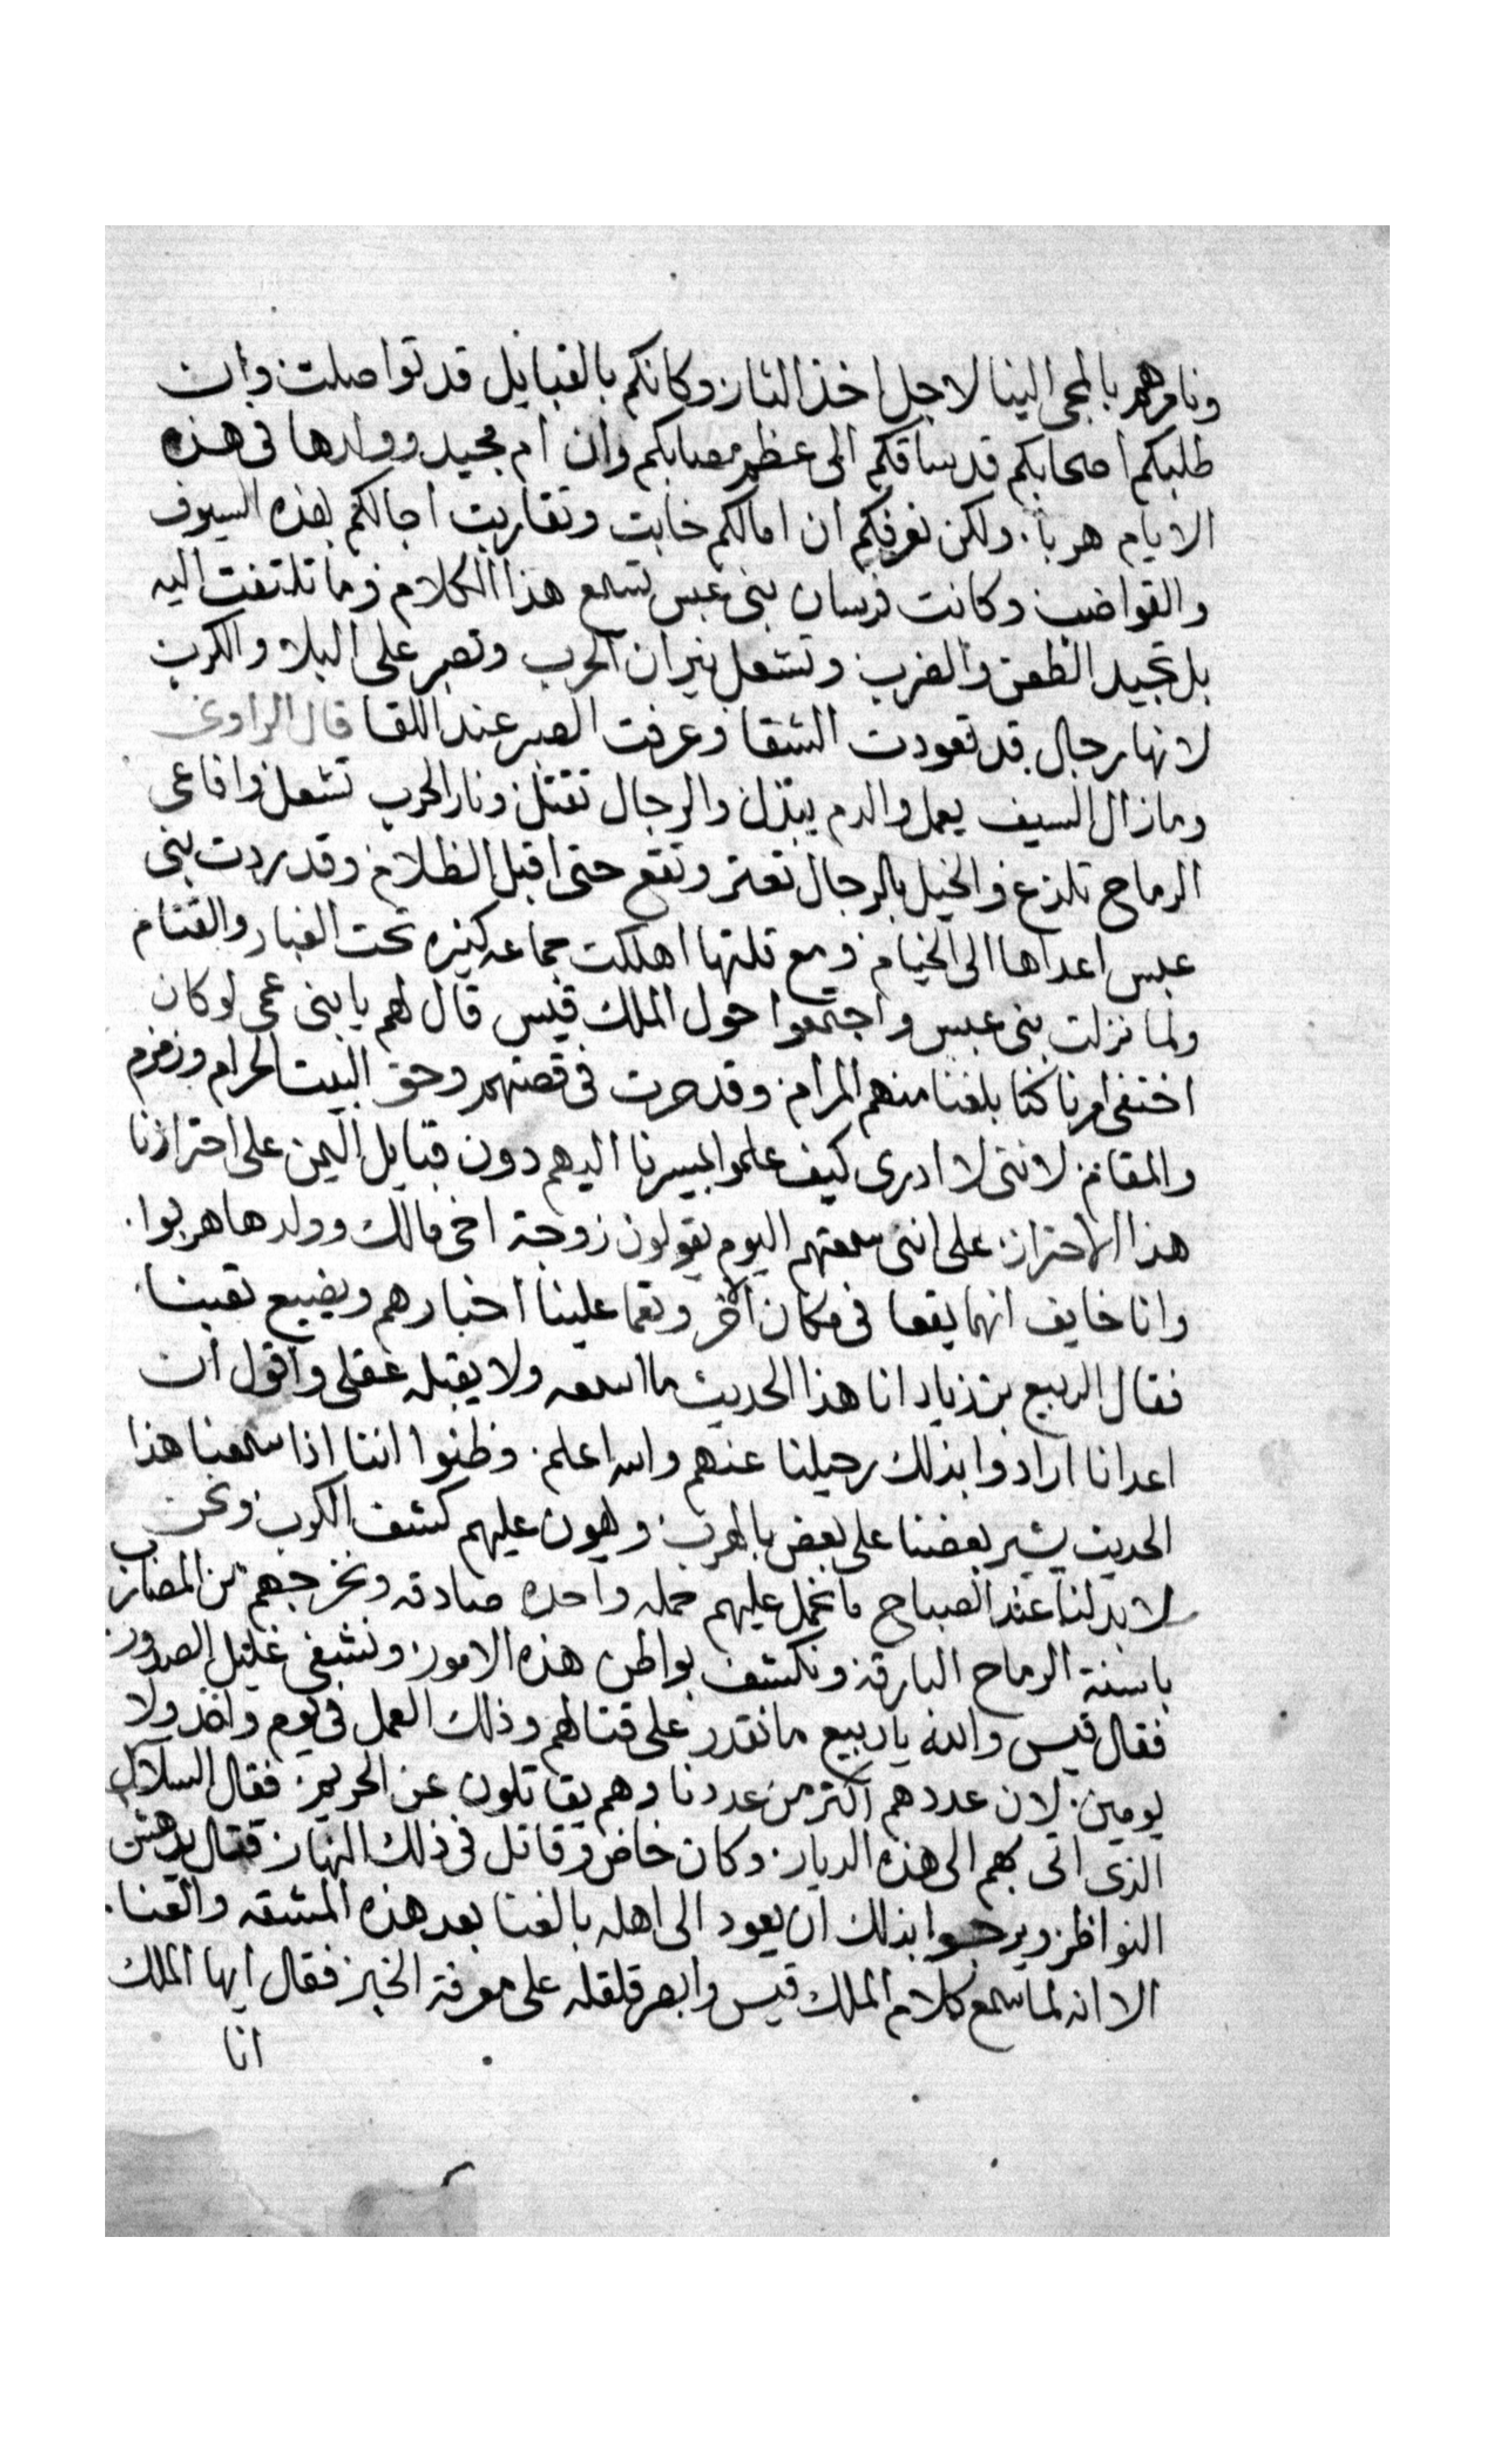 ونامرهم بالمجى الينا لاجل اخذ الثار وكانكم بالقبايل قد تواصلت وان
طلبكم اصحابكم قد ساقكم الى عظم مصابكم وان ام مجيد وولدها فى هذه
الايام هربا. ولكن نعرفكم ان امالكم خابت وتقاربت اجالكم بهذه السيوف
والقواضب وكانت فرسان بنى عبس تسمع هذا الكلام وما تلتفت اليه
بل تجيد الطعن والضرب وتشعل نيران الحرب وتصبر على البلا والكرب
لانها رجال قد تعودت الشقا وعرفت الصبر عند اللقا قال الراوى
وما زال السيف يعمل والدم يبذل والرجال تقتل ونار الحرب تشعل وافاعى
الرماح تلذع والخيل بالرجال تعتر وتقع حتى اقبل الظلام وقد ردت بنى
عبس اعداها الى الخيام ومع قلتها اهلكت جماعه كثيره تحت الغبار والقتام
ولما نزلت بنى عبس واجتمعوا حول الملك قيس قال لهم يا بنى عمى لو كان
اختفى امرنا كنا بلغنا منهم المرام وقد حرت فى قصتهم وحق البيت الحرام وزمزم
والمقام لاننى لا ادرى كيف علموا بمسيرنا اليهم دون قبايل اليمن على احترازنا
هذا الاحتراز على اننى سمعتهم اليوم يقولون زوجة اخى مالك وولدها هربوا.
وانا خايف انهما يقعا فى مكان اخر وتعما علينا اخبارهم ويضيع تعبنا
فقال الربيع بن زياد انا هذا الحديث ما اسمعه ولا يقبله عقلى واقول ان
اعدانا ارادوا بذلك رحيلنا عنهم والله اعلم. وظنوا اننا اذا سمعنا هذا
الحديث يشير بعضنا على بعض بالهرب ويهون عليهم كشف الكرب ونحن
لا بد لنا عند الصباح ما نحمل عليهم حمله واحده صادقه ونخرجهم من المضارب
باسنة الرماح البارقه ونكشف بواطن هذه الامور ونشفى غليل الصدور
فقال قيس والله يا ربيع ما نقدر على قتالهم وذلك العمل فى يوم واحد ولا
يومين. لان عددهم اكثر من عددنا وهم يقاتلون عن الحريم. فقال السلال
الذى اتى بهم الى هذه الديار. وكان خاض وقاتل فى ذلك النهار فقال يدهش
النواظر ويرجوا بذلك ان يعود الى اهله بالغنا بعد هذه المشقه والعنا.
الا انه لما سمع كلام الملك قيس وابصر قلقله على معرفة الخبر فقال ايها الملك
انا